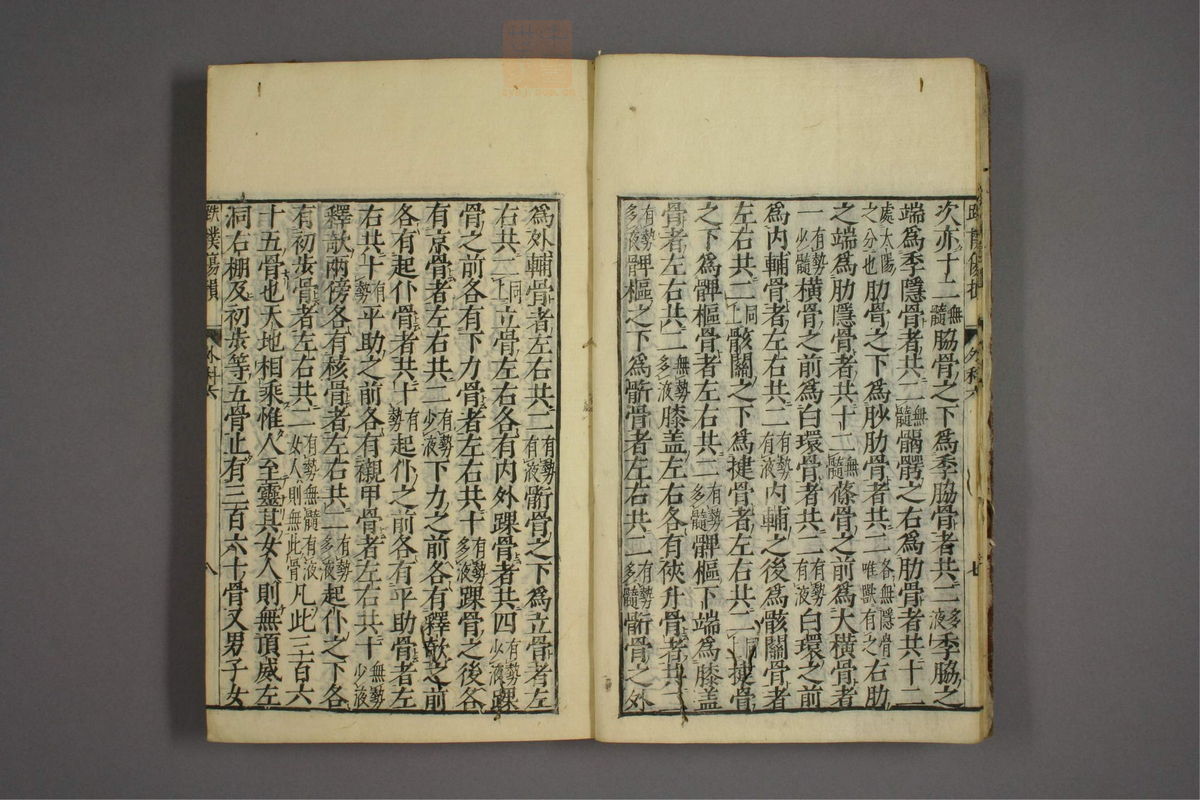 次亦十二無髓脇骨之下為季脇骨者共二多液季脇之
端為季隱骨者共二無髓髑髏之右為肋骨者共十二
處太陽之分也肋骨之下為䏚肋骨者共二各無隱骨唯獸有之右肋
之端為肋隱骨者共十二無髓篠骨之前為大橫骨者
一有勢少髓橫骨之前為白環骨者共二有勢有液白環之前
為內輔骨者左右共二有勢有液內輔之後為骸關骨者
左右共二同上骸關之下為揵骨者左右共二同上揵骨
之下為髀樞骨者左右共二有勢多髓髀樞下端為膝蓋
骨者左右共二無勢多液膝盖左右各有俠升骨者共二
有勢多液髀樞之下為骭骨者左右共二有勢多髓骭骨之外
為外輔骨者左右共二有勢有液骭骨之下為立骨者左
右共二同上立骨左右各有內外踝骨者共四有勢少液踝
骨之前各有下力骨者左右共十有勢多液踝骨之後各
有京骨者左右共二有勢少液下力之前各有釋欹之前
各有起仆骨者共十有勢起仆之前各有平助骨者左
右共十有勢平助之前各有襯甲骨者左右共十無勢少液
釋欹兩傍各有核骨者左右共二有勢多液起仆之下各
有初步骨者左右共二有勢無髓有液女人則無此骨凡此三百六
十五骨也天地相乘惟人至靈其女人則無頂威左
洞右棚及初步等五骨止有三百六十骨又男子女
跌撲傷損
外科六
八